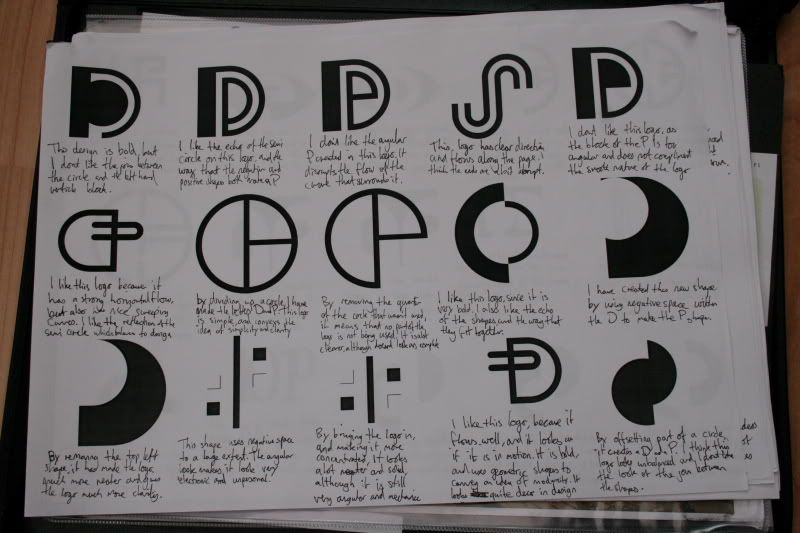 The design is bold, but
I dont like the join between
the circle and the left hand
verticle block.
I like the echo of the semi
circle on this logo, and the
way that the negative and
positive shapes both create a P
I dont like the angular
P created in this logo. It
disrupts the flow of the
curve that surrounds it.
This logo has clear direction
and flows along the page. I
think the ends are a bit abrupt.
I dont like this logo, as
the block of the P is too
angular and does not compliment
the smooth nature of the logo
I like this logo because it
has a strong horizontal flow,
but also has nice sweeping
curves. I like the reflection of the
semi circle which to design
by dividing up a circle, I have
made the letters D and P. This logo
is simple, and conveys the
idea of simplicity and clarity
By removing the quarter
of the circle that wasnt used,
it means that no part of the
logo is not being used. It is a lot
clearer, although doesnt look as complete
I like this logo, since it is
very bold. I also like the echo
of the shapes and the way that
they fit together.
I have created this new shape
by using negative space within
the D to make the P shape.
By removing the top left
shape, it has made the logo
much more neater and gives
the logo much more clarity.
This shape uses negative space
to a large extent. The angular
look makes it look very
electronic and unpersonal.
By bringing the logo in,
and making it more
concentrated, it looks
a lot and solid,
although it is still
very angular and
I like this logo, because it
flows well, and it looks as
if it is in motion. It is bold,
and uses geometric shapes to
convey an idea of modernity. It
looks quite deco in design
By offsetting part of a circle,
it creates a D and a P. I think this
logo looks unbalanced and I dont like
the look of the join between
the shapes.